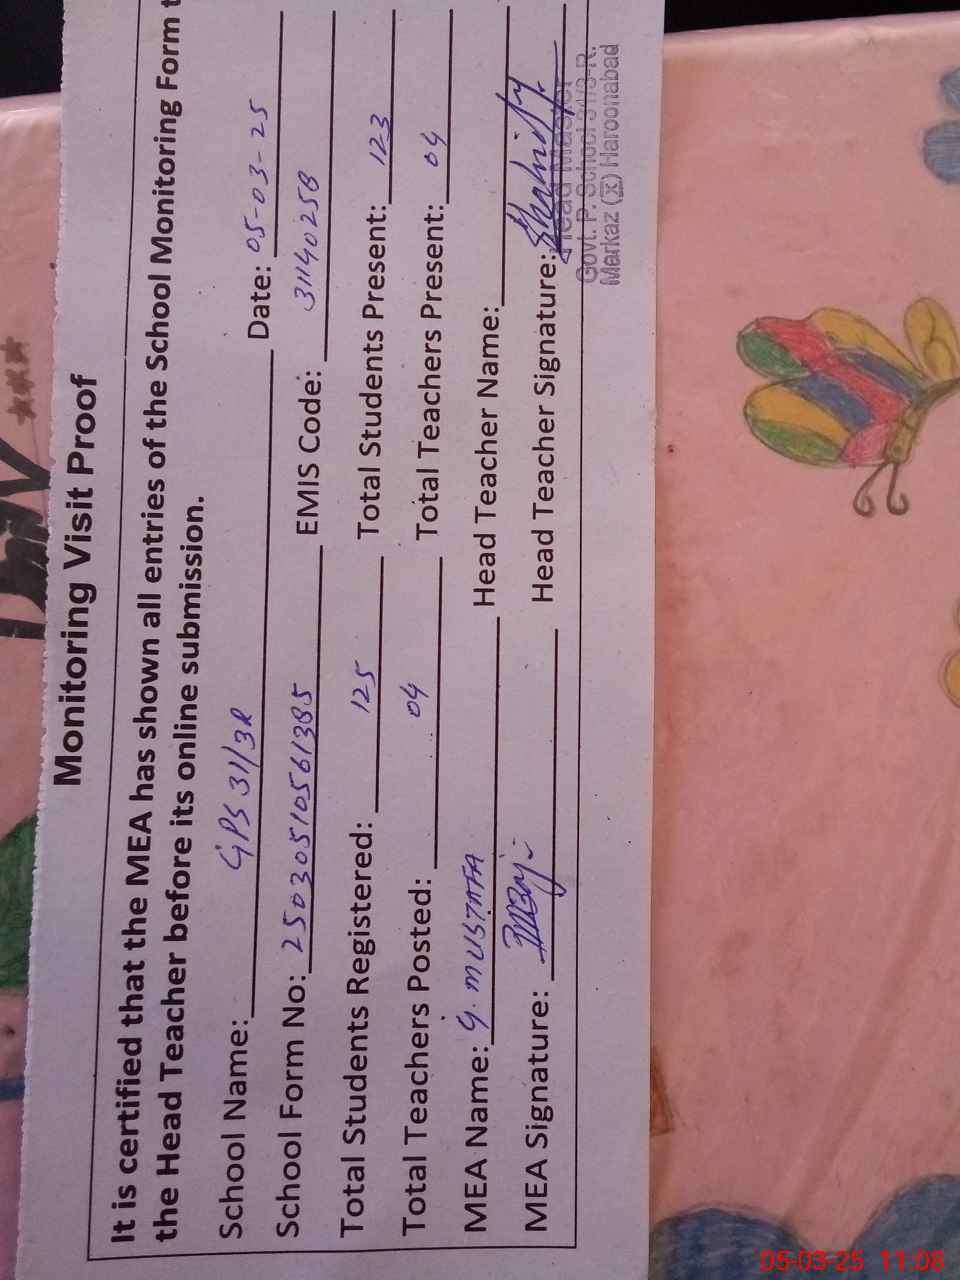 Monitoring Visit Proof
It is certified that the MEA has shown all entries of the School Monitoring Form t
the Head Teacher before its online submission.
School Name: GPS 31/3R Date: 05-03-25
School Form No: 25030510561385 EMIS Code: 31140258
Total Students Registered: 125 Total Students Present: 123
Total Teachers Posted: 04 Total Teachers Present: 04
MEA Name: G. MUSTAFA Head Teacher Name:
MEA Signature: Head Teacher Signature:
Head Master
Govt. P. School 31/3-R.
Markaz (X) Haroonabad
05-03-25 11:08